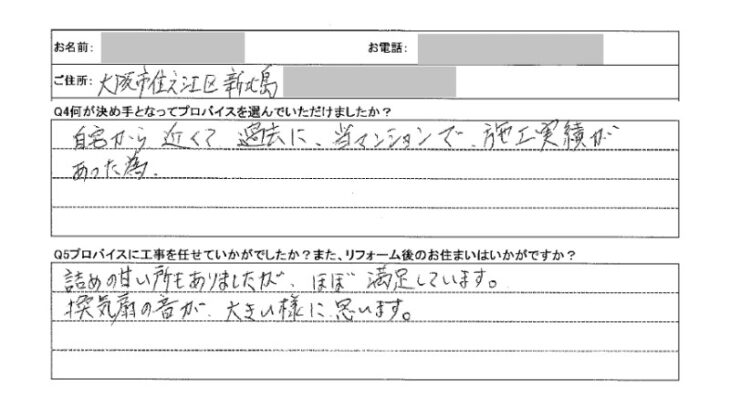 お名前: お電話:
ご住所: 大阪市住之江区新北島
Q4何が決め手となってプロバイスを選んでいただけましたか?
自宅から近くて過去に、当マンションで、施工実績が
あった為.
Q5プロバイスに工事を任せていかがでしたか?また、リフォーム後のお住まいはいかがですか?
詰めの甘い所もありましたが、ほぼ満足しています。
換気扇の音が、大きい様に思います。